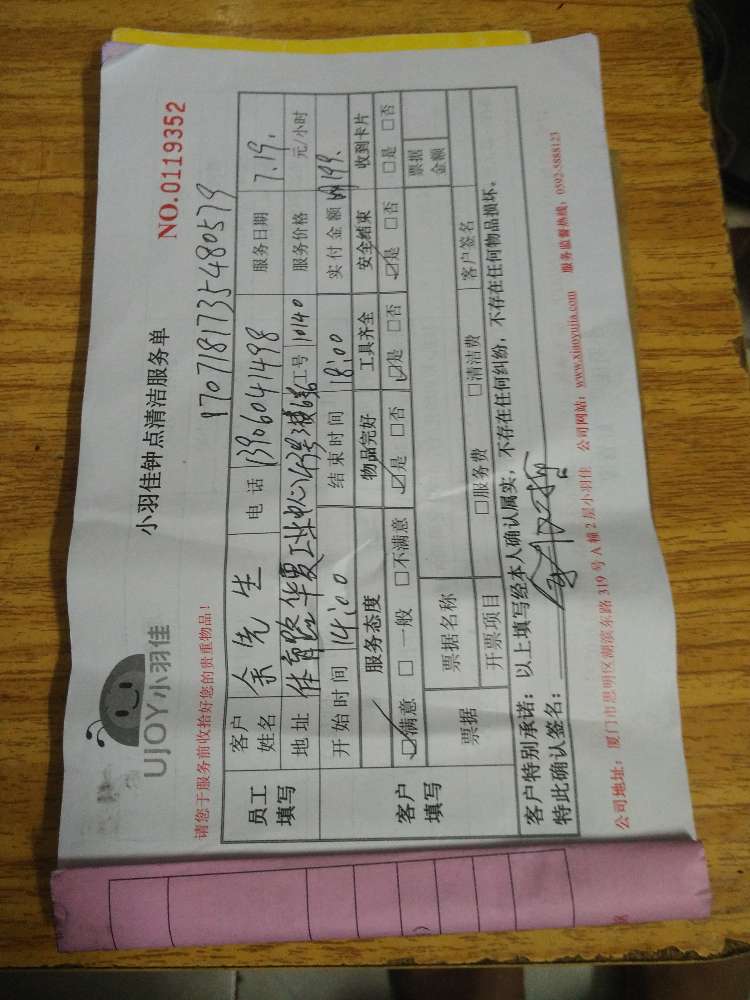 UJOY小羽佳
小羽佳钟点清洁服务单
NO.0119352
请您于服务前收拾好您的贵重物品!
1707181735480579
员工填写
客户姓名 余先生 电话 13906041498 服务日期 7.19.
地址 体育路华夏工业中心 3号3楼 工号 10140 服务价格 元/小时
客户填写
开始时间 14:00 结束时间 18:00 实付金额 199.
服务态度 物品完好 工具齐全 安全结束 收到卡片
☑满意 □一般 □不满意 ☑是 □否 ☑是 □否 ☑是 □否 □是 □否
票据 票据名称 票据金额
开票项目 □服务费 □清洁费 客户签名
客户特别承诺:以上填写经本人确认属实,不存在任何纠纷,不存在任何物品损坏。
特此确认签名:
公司地址:厦门市思明区湖滨东路 319 号 A 幢 2 层小羽佳 公司网站:www.xiaoyujia.com 服务监督热线:0592-5888123